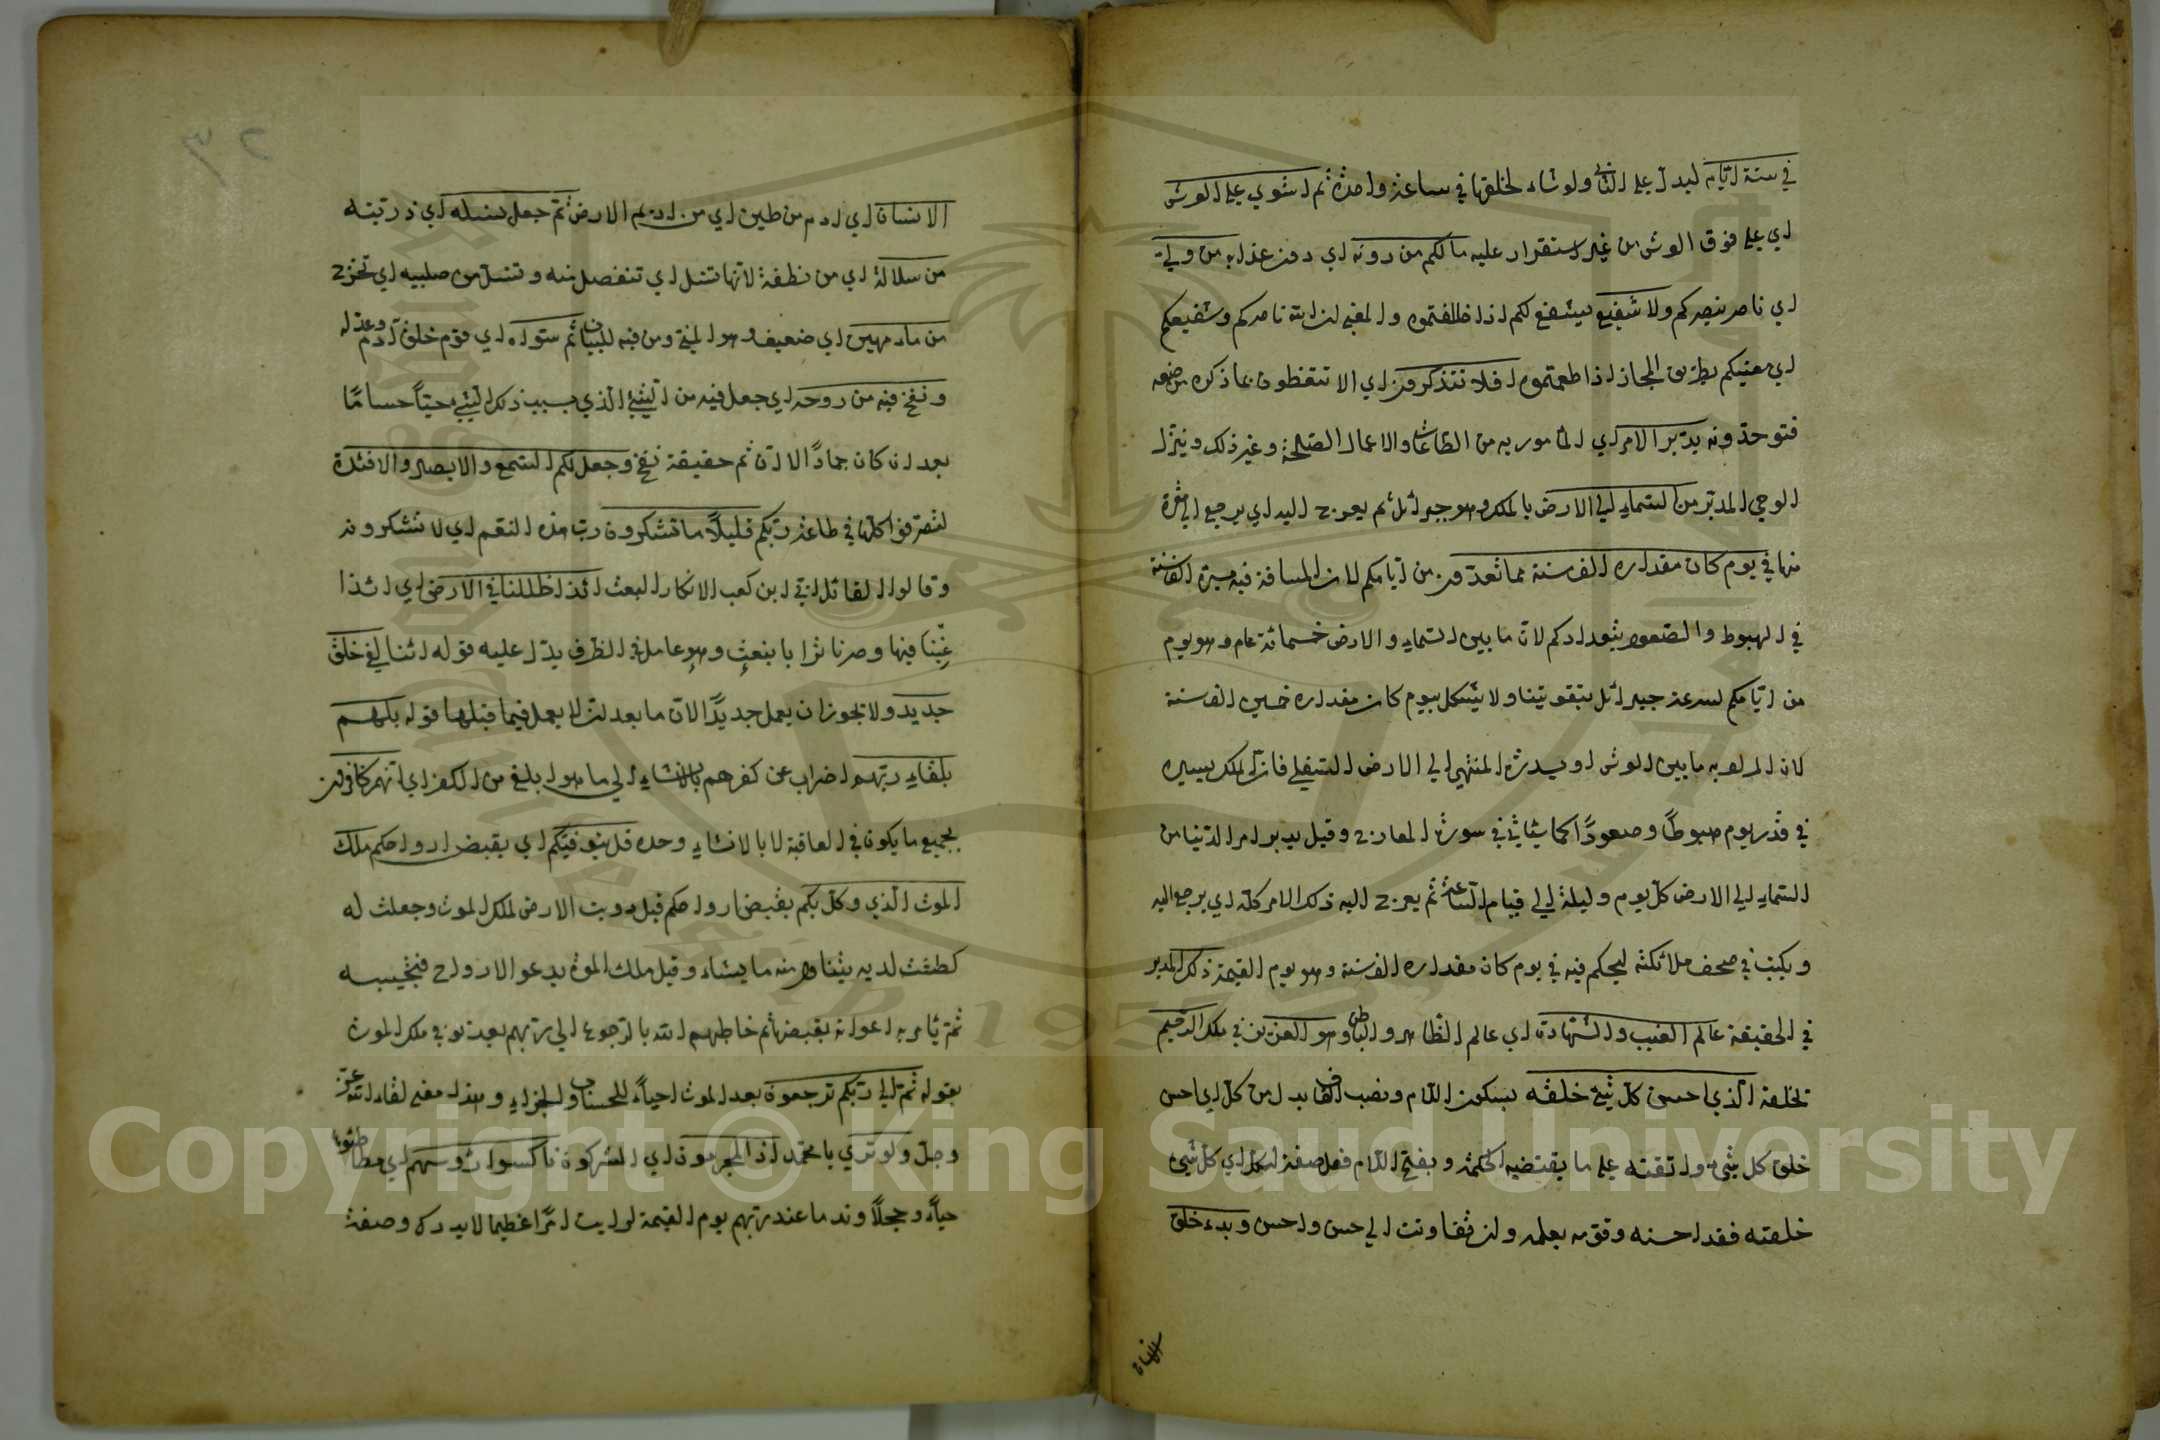 في ستة ايام ليدل على التاني ولو شاء لخلقها في ساعة واحدة ثم استوي على العرش
اي على فوق العرش من غير استقرار عليه ما لكم من دونه اي دون عذابه من ولي
اي ناصر ينصركم ولا شفيع يشفع لكم اذا خالفتموه والمعنى ان الله ناصركم وشفيعكم
اي معينكم بطريق المجاز اذا اطعتموه افلا تتذكرون اي الا تتعظون بما ذكره من صنعه
فتوحدونه يدبر الامر اي المامور به من الطاعات والاعمال الصالحة وغير ذلك وينزل
الوحي المدبر من السماء الى الارض بالملك وهو جبرائل ثم يعرج اليه اي يرجع الى مقره
منها في يوم كان مقداره الف سنة مما تعدون من ايامكم لان المسافة فيه مسيرة الف سنة
في الهبوط والصعود بتعدادكم لان ما بين السماء والارض خمسمائة عام وهو يوم
من ايامكم لسرعة جبرائل بتقويتنا ولا يشكل بيوم كان مقداره خمسين الف سنة
لان المراد به ما بين العرش او سدرة المنتهى الى الارض السفلى فان الملك يسيره
في قدر يوم هبوطا وصعودا كما سياتي في سورة المعارج وقيل يدبر امر الدنيا من
السماء الى الارض كل يوم وليلة الى قيام الساعة ثم يعرج اليه ذلك الامر كله اي يرجع اليه
ويكتب في صحف ملائكته ليحكم فيه في يوم كان مقداره الف سنة وهو يوم القيمة ذلك المدبر
في الحقيقة عالم الغيب والشهادة اي عالم الظاهر والباطن وهو العزيز في ملكه الرحيم
لخلقه الذي احسن كل شئ خلقه بسكون اللام ونصب القاف بدل من كل اي احسن
خلق كل شئ واتقنه على ما يقتضيه الحكمة وبفتح اللام فعل صفة لكل اي كل شئ
خلقته فقد احسنه وقوّمه بعلمه وان تفاوتت الى حسن واحسن وبدء خلق
الانسان
الانسان اي ادم من طين اي من اديم الارض ثم جعل نسله اي ذريته
من سلالة اي من نطفة لانها تنسل اي تنفصل منه وتنسل من صلبه اي تخرج
من ماء مهين اي ضعيف وهو المني ومن فيه للبيان ثم سواه اي قوم خلق آدم وعدله
ونفخ فيه من روحه اي جعل فيه من الشئ الذي بسبب ذلك الشئ حيا حساسا
بعد ان كان جمادا الا ان ثم حقيقة نفخ وجعل لكم السمع والابصار والافئدة
لتصرفوا كلها في طاعة ربكم قليلا ما تشكرون رب هذه النعم اي لا تشكرونه
وقالوا القائل ابي ابن كعب لانكار البعث ائذا ظللنا في الارض اي ائذا
غبنا فيها وصرنا ترابا نبعث وهو عامل في الظرف يدل عليه قوله ائنا لفي خلق
جديد ولا يجوز ان يعمل جديد الان ما بعد ان لا يعمل فيما قبلها قوله بل هم
بلقاء ربهم اضراب عن كفرهم بالانشاء الى ما هو ابلغ من الكفر اي انهم كافرون
بجميع ما يكون في العاقبة لا بالانشاء وحده قل يتوفيكم اي يقبض ارواحكم ملك
الموت الذي وكل بكم بقبض ارواحكم قيل دويت الارض لملك الموت وجعلت له
كطشت لديه يتناول منه ما يشاء وقيل ملك الموت يدعو الارواح فتجيبه
ثم يامر به اعوانه بقبضها ثم خاطبهم الله بالرجوع الى ربهم بعد توفي ملك الموت
بقوله ثم الى ربكم ترجعون بعد الموت احياء للحساب والجزاء وهذا معنى لقاء الله عز
وجل ولو تري يا محمد اذ المجرمون اي المشركون ناكسوا رؤسهم اي مطاطئوها
حياء وخجلا وندما عند ربهم يوم القيمة لرايت امرا عظيما لا يدركه وصفة
Copyright © King Saud University
1957